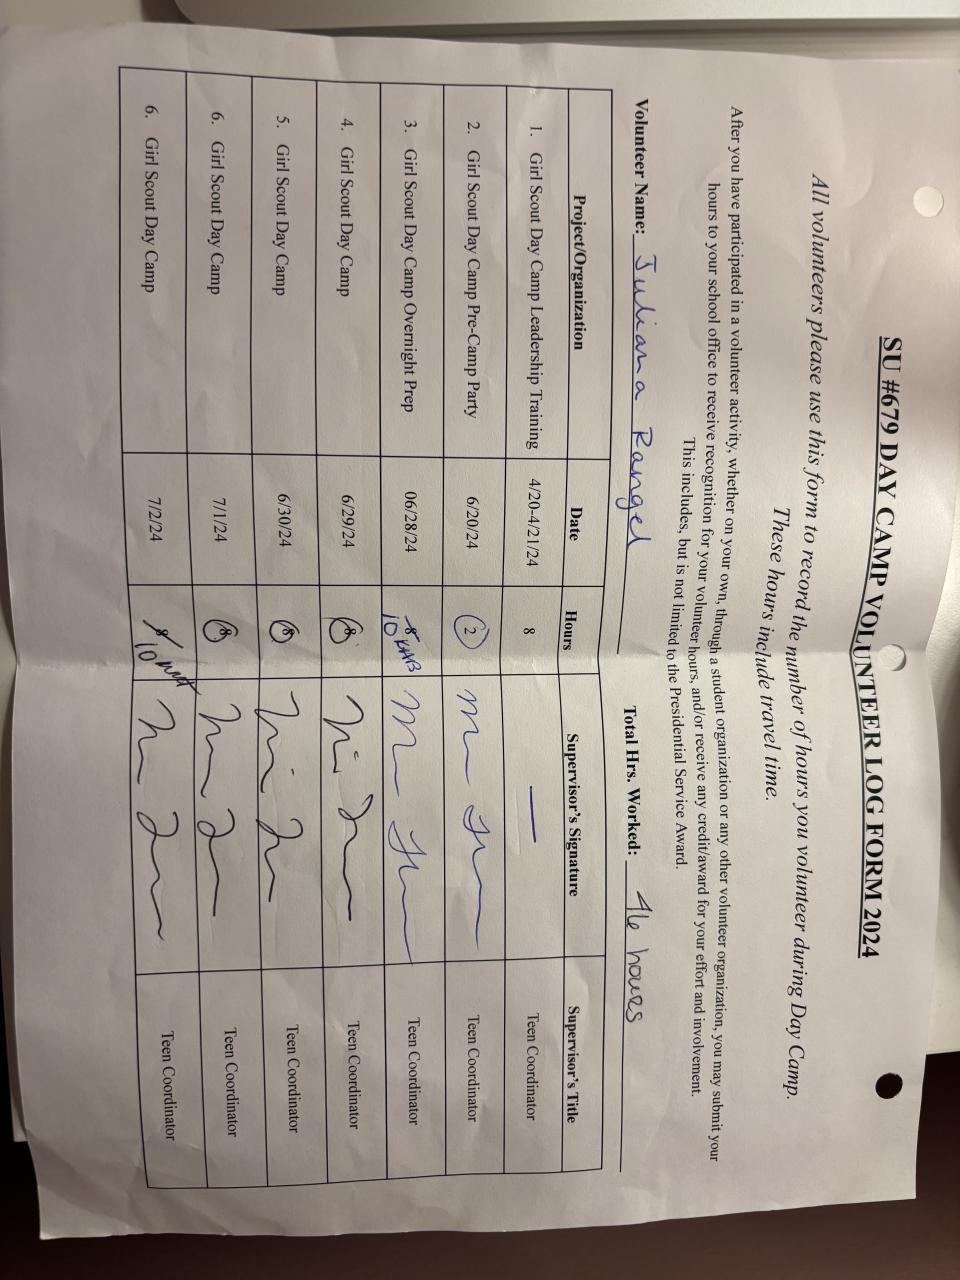 SU #679 DAY CAMP VOLUNTEER LOG FORM 2024
All volunteers please use this form to record the number of hours you volunteer during Day Camp.
These hours include travel time.
After you have participated in a volunteer activity, whether on your own, through a student organization or any other volunteer organization, you may submit your
hours to your school office to receive recognition for your volunteer hours, and/or receive any credit/award for your effort and involvement.
This includes, but is not limited to the Presidential Service Award.
Volunteer Name: Juliana Rangel Total Hrs. Worked: 46 hours
Project/Organization Date Hours Supervisor's Signature Supervisor's Title
1. Girl Scout Day Camp Leadership Training 4/20-4/21/24 8 — Teen Coordinator
2. Girl Scout Day Camp Pre-Camp Party 6/20/24 2 Teen Coordinator
3. Girl Scout Day Camp Overnight Prep 06/28/24 8 10 Teen Coordinator
4. Girl Scout Day Camp 6/29/24 8 Teen Coordinator
5. Girl Scout Day Camp 6/30/24 8 Teen Coordinator
6. Girl Scout Day Camp 7/1/24 8 Teen Coordinator
6. Girl Scout Day Camp 7/2/24 8 10 Teen Coordinator